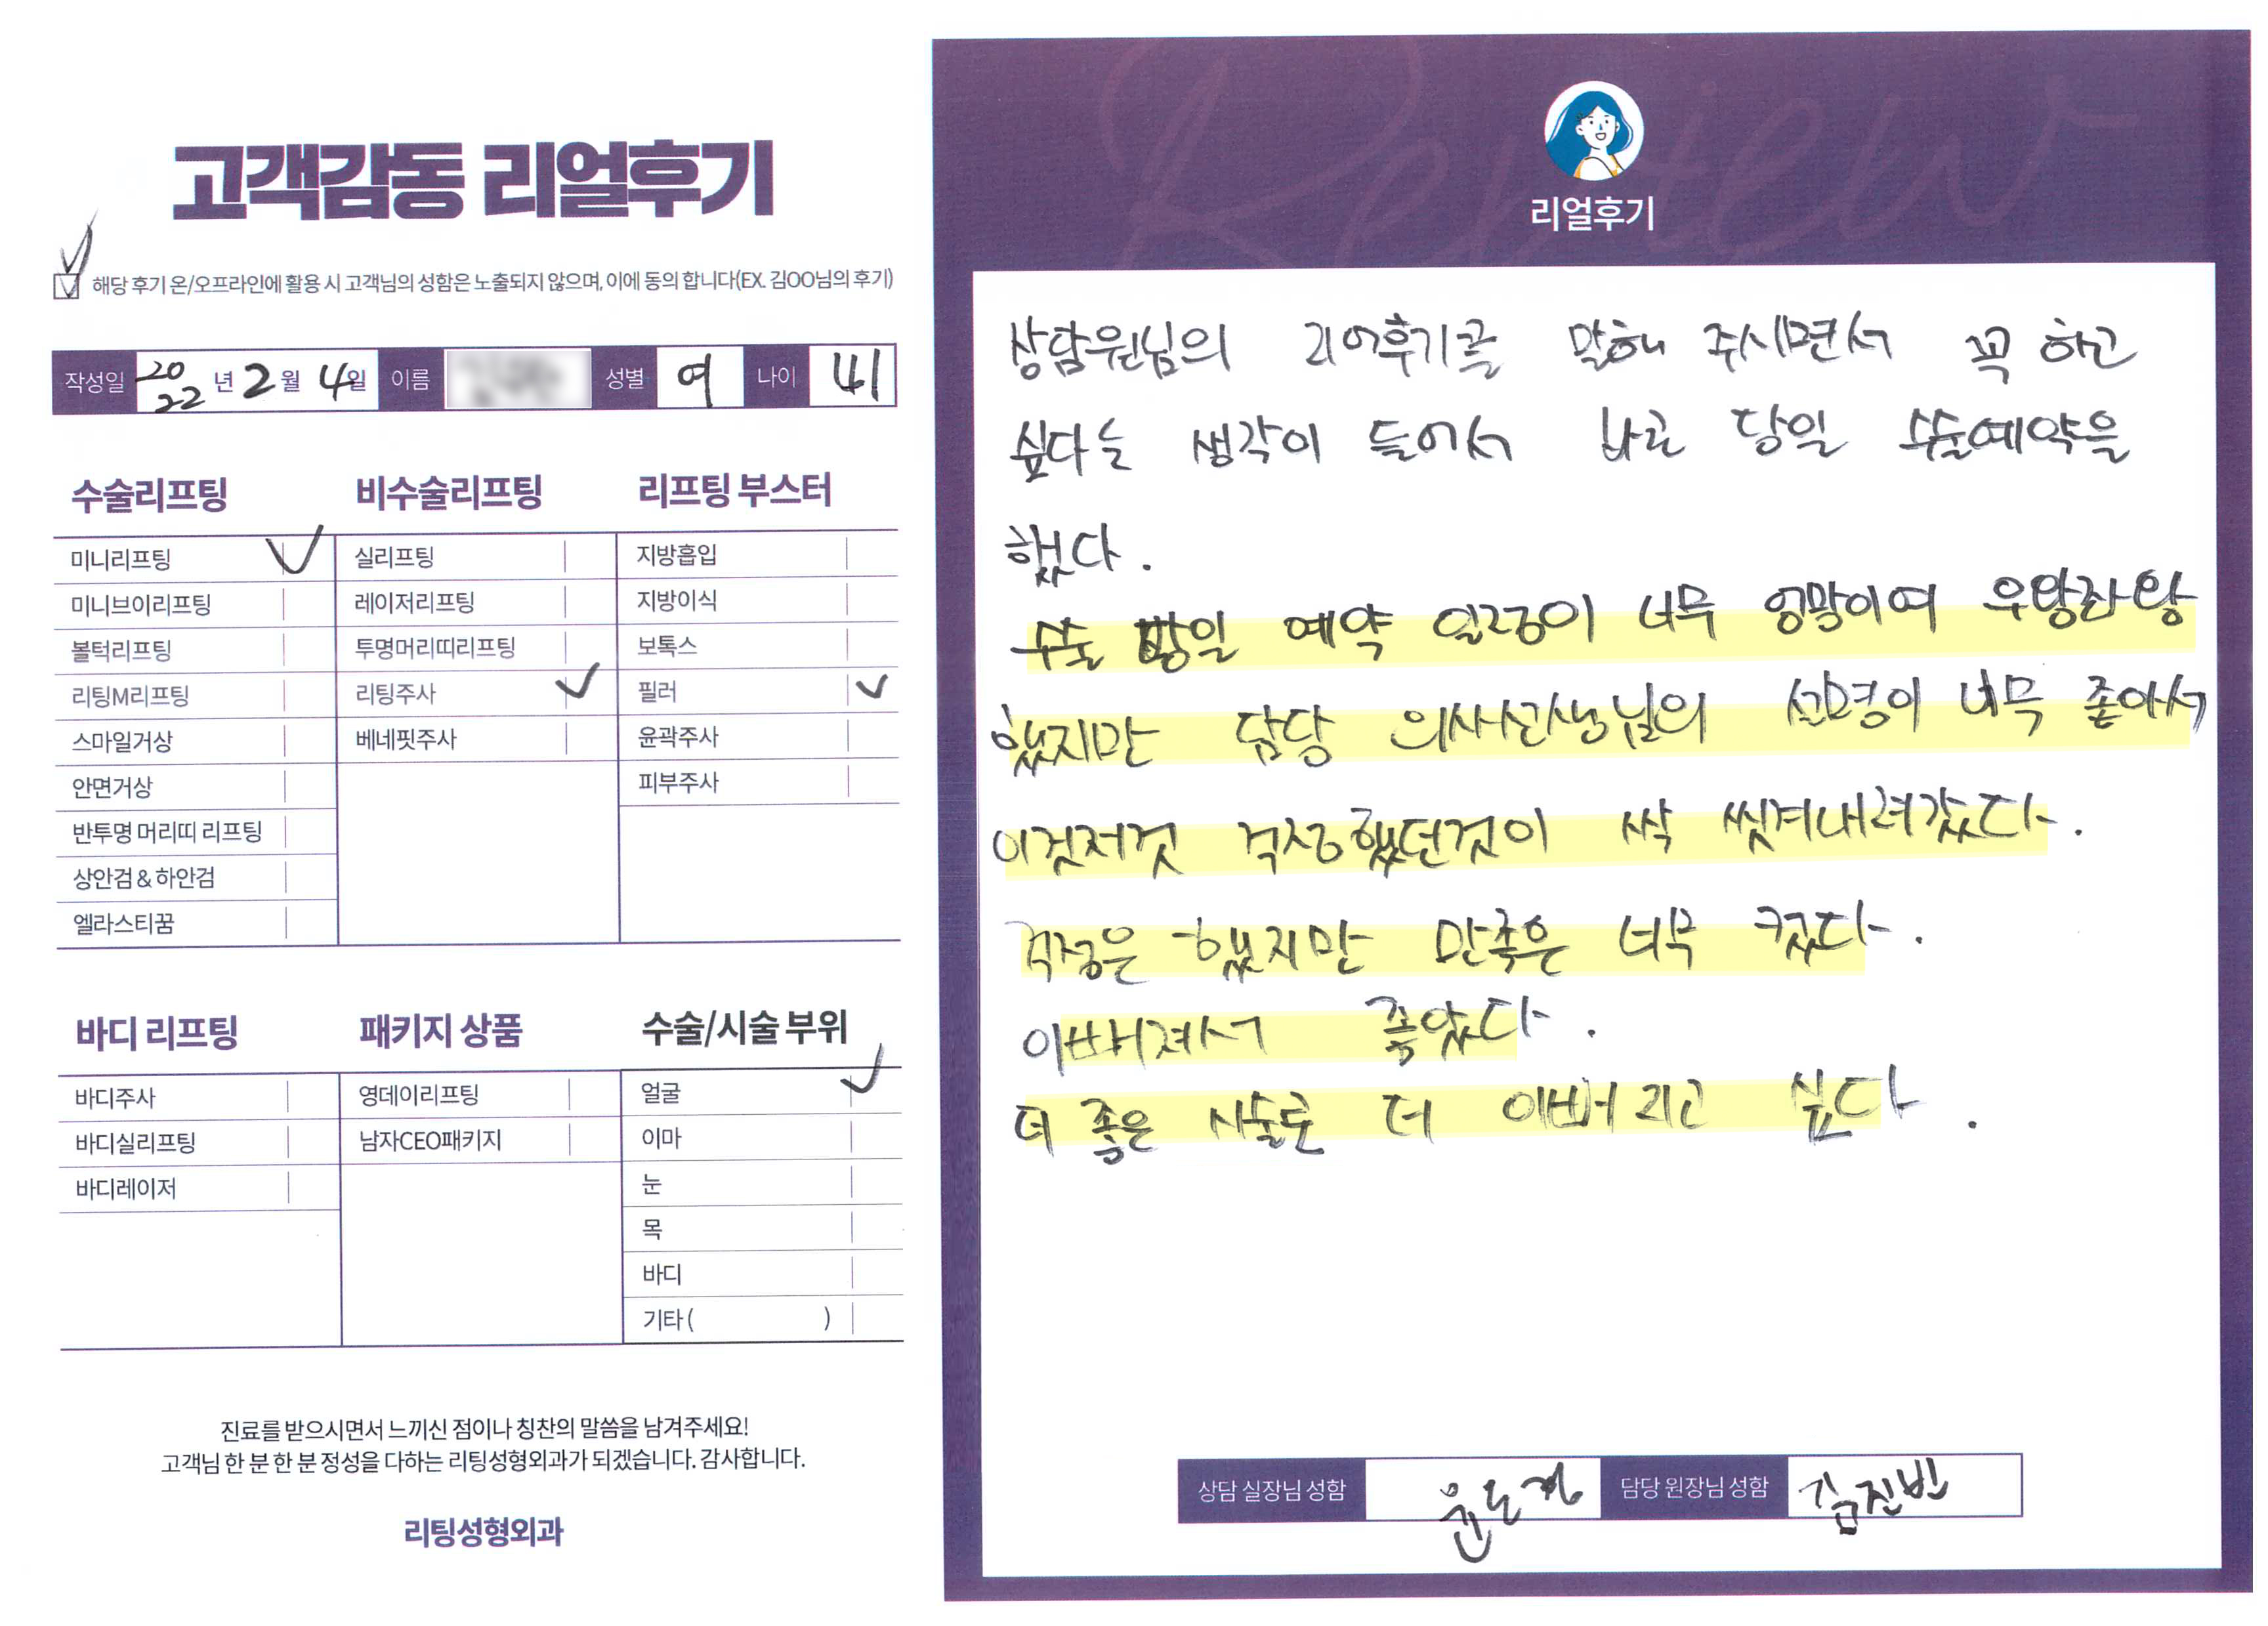 고객감동 리얼후기
해당 후기 온/오프라인에 활용 시 고객님의 성함은 노출되지 않으며, 이에 동의 합니다(EX. 김OO님의 후기)
작성일 2022년 2월 4일 이름 성별 여 나이 41
수술리프팅 비수술리프팅 리프팅 부스터
미니리프팅 실리프팅 지방흡입
미니브이리프팅 레이저리프팅 지방이식
볼턱리프팅 투명머리띠리프팅 보톡스
리팅M리프팅 리팅주사 필러
스마일거상 베네핏주사 윤곽주사
안면거상 피부주사
반투명 머리띠 리프팅
상안검 & 하안검
엘라스티꿈
바디 리프팅 패키지 상품 수술/시술 부위
바디주사 영데이리프팅 얼굴
바디실리프팅 남자CEO패키지 이마
바디레이저 눈
목
바디
기타 ( )
진료를 받으시면서 느끼신 점이나 칭찬의 말씀을 남겨주세요!
고객님 한 분 한 분 정성을 다하는 리팅성형외과가 되겠습니다. 감사합니다.
리팅성형외과
Review
리얼후기
상담원님의 리어후기를 말해 주시면서 꼭 하고
싶다는 생각이 들어서 바로 당일 수술예약을
했다.
수술 당일 예약 일정이 너무 엉망이여 우왕좌왕
했지만 담당 의사선생님의 설명이 너무 좋아서
이것저것 걱정했던것이 싹 씻겨내려갔다.
걱정은 했지만 만족은 너무 컸다.
이뻐져서 좋았다.
더 좋은 시술로 더 이뻐지고 싶다.
상담 실장님 성함 담당 원장님 성함 김진빈